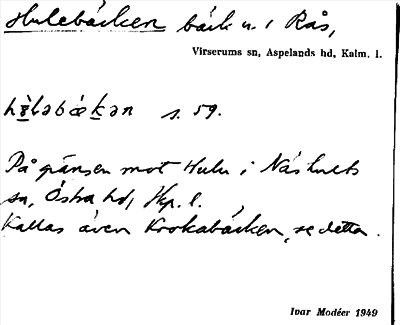 Hulebäcken bäck n. i Rås,
Virserums sn, Aspelands hd, Kalm. l.
s. 59.
På gränsen mot Hulu i Näshults
sn, Östra hd, Jkp. l.
Kallas även Krokabäcken, se detta.
Ivar Modéer 1949